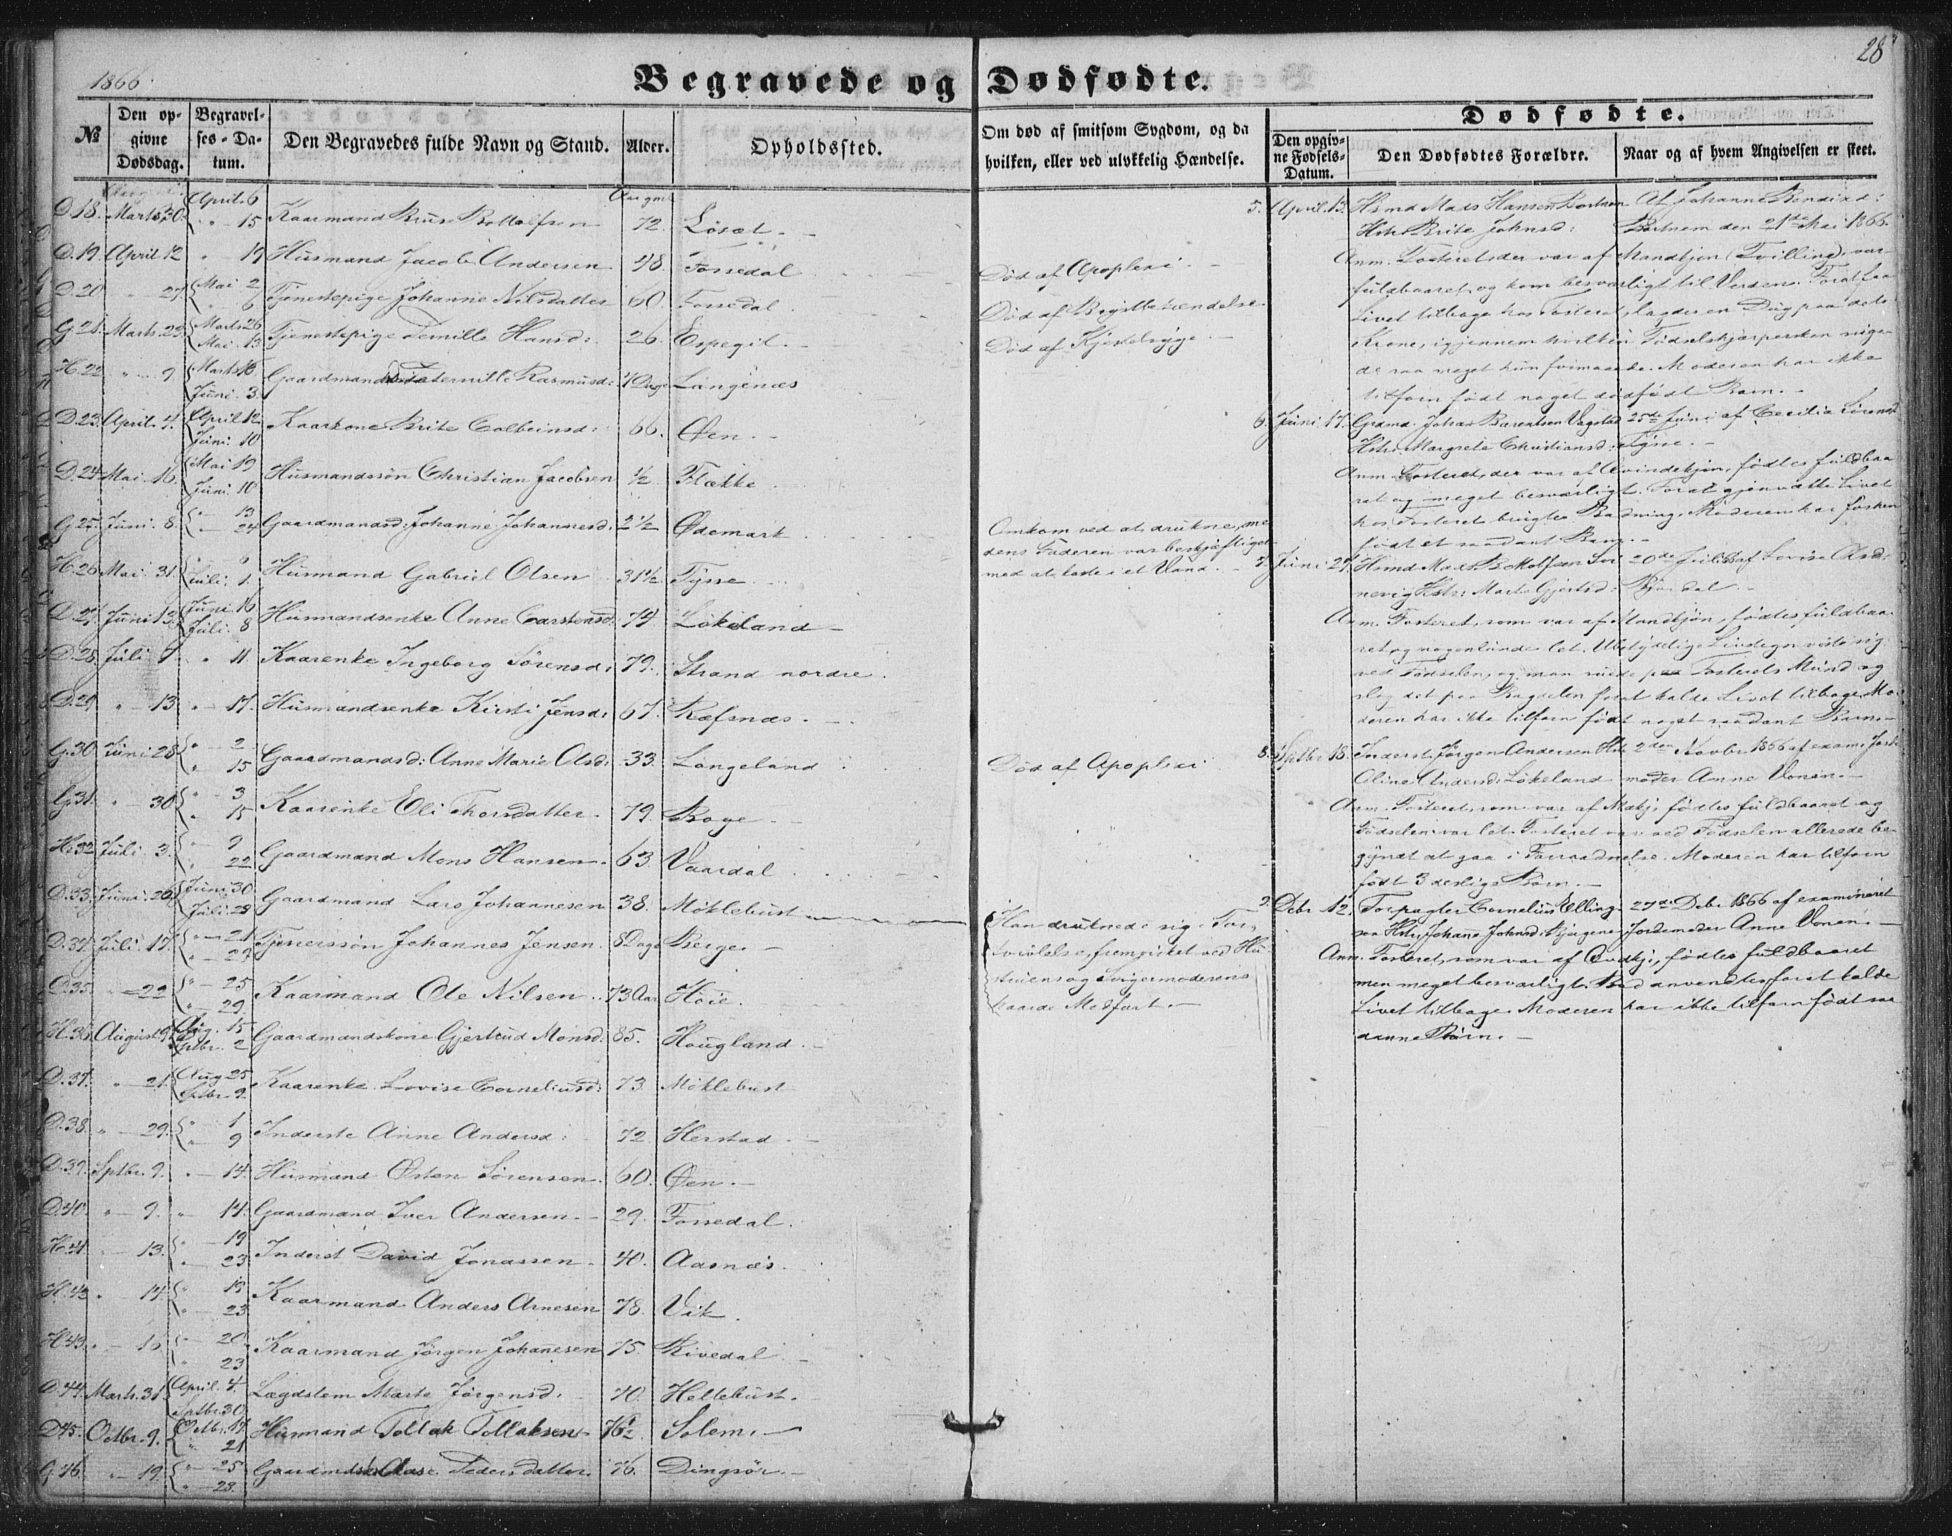 1866.
Begravede og Dødfødte.
28
№
Den op-
givne
Dødsdag.
Begravel-
ses-Da-
tum.
Den Begravedes fulde Navn og Stand.
Alder.
Opholdssted.
Om død af smitsom Sygdom, og da
hvilken, eller ved ulykkelig Hændelse.
Dødfødte.
Den opgiv-
ne Fødsels-
Datum.
Den Dødfødtes Forældre.
Naar og af hvem Angivelsen er skeet.
D.18. Marts 20. April 6 15 Kaarmand 72. Løset.
D.19. April 12 " 19 Husmand Jacob Andersen 48. Fossedal
D.20 " 27. Mai 2 6 Tjenestepige Johanne Nilsdatter 60. Fossedal
G.21. Marts 23. Marts 26 Mai 13 Tjenestepige Hansd: 26. Espegil.
H.22 " 9 Marts 18 Juni 3 Gaardmands Rasmusd: Dage Langenæs
D.23. April 4. April 12 Juni 10 Kaarkone Brite Colbeinsd: 66. Øen.
D.24. Mai 16 Mai 19 Juni 10 Husmandssøn Christian Jacobsen 1/2 Flække
G.25. Juni 8. " 13 24 Gaardmandsd: Johanne Johannesd: 2 1/2 Ødemark
H.26. Mai 31. Juli 1 Husmand Gabriel Olsen 31 1/2 Tysse
D.27. Juni 13. Juni 16 Juli 8 Husmandsenke Anne Carstensd: 74 Løkeland
D.28. Juli " 11 Kaarenke Ingeborg Sørensd: 79. Strand nordre.
D.29 " 13. " 17. Husmandsenke Kirsti Jensd: 67. Ræfsnæs.
G.30. Juni 28 " 2 15 Gaardmandsd: Anne Marie Olsd: 33. Langeland
G.31. " 30 " 3 15 Kaarenke Eli Thorsdatter. 79. Boge.
H.32 Juli 3. " 9 22 Gaardmand Mons Hansen. 63. Vaardal
D.33. Juni 26 Juni 30 Juli 29 Gaardmand Lars Johannesen 38. Møklebust
D.34. Juli 17. 21 29 Tjenerssøn Johannes Jensen. 8 Dage Berge.
D.35. 22 " 25 29 Kaarmand Ole Nilsen 73 Aar Høie.
H.36. August 19. Aug. 15 Sptbr. 2 Gaardmandskone Gjertrud Monsd: 85. Hougland.
D.37. " 21. Aug 25 Sptbr. 9. Kaarenke Lovise Corneliusd: 73. Møklebust
D.38. " 29. " 1 9 Inderste Anne Andersd: 72 Herstad.
D.39. Sptbr. 9. " 14. Husmand Østen Sørensen. 60. Øen.
D.40. " 9. " 14. Gaardmand Iver Andersen. 29. Fossedal.
H.41. " 13. " 19 23 Inderst David Jonassen 40. Aasnæs.
H.42. " 14 " 19 23 Kaarmand Anders Arnesen 78. Vik.
H.43. " 16 " 20. 23 Kaarmand Jørgen Johanesen 75. Rivedal
D.44. Marts 31 April 4. Sptbr. 30 Lægdslem Marte Jørgensd. 70. Hellebust.
D.45. Octbr. 9. Octbr. 14 21 Husmand Tollak Tollaksen 76 1/2 Solem.
G.46. " 19. " 25 28. Gaardmdsk: Aase Pedersdatter. 76. Dingsør.
Død af Apoplexi.
Død af Brystbetændelse
Død af Kjertelsyge.
Omkom ved at drukne, me
dens Faderen var beskjæftiget
med at lade i et Vand.
Død af Apoplexi
Han druknede sig i For-
tvivlelse, fremvirket ved Hu
struens og Svigermoderens
haarde Medfart.
5. April 13. Hsmd Mads Hansen Af Johanne
Hstr: Brite Johnsd: den 21de Mai 1866.
Anm. Fosteret, der var af Mandkjøn (Tvilling) var
fuldbaaret, og kom besværligt til Verden. Forat faa
Livet tilbage hos Fosteret, lagdes en Dug paa dets
Krone, igjennem hvilken Fødselshjælpersken
de saa meget hun formaaede. Moderen har ikke
tilforn født noget dødfødt Barn.
6. Juni 17. Grdmd. Johan Barentsen Vagstad 25de Juni af Cecilia Sørensd:
Hstr: Margrete Christiansd:
Anm. Fosteret, der var af Qvindekjøn, fødtes fuldbaa
ret og meget besværligt. Forat gjenvække Livet
hos Fosteret brugtes Badning. Moderen har forhen
født et saadant Barn.
7. Juni 29. Hsmd Mads 20de Juli af Lovise Olsd:
Hstr: Marte Gjertsd:
Anm. Fosteret, som var af Mandkjøn, fødtes fuldbaa
ret og nogenlunde let. Ubetydelige Livstegn viste sig
ved Fødselen, og man paa Fosterets Mund og
slog det paa Bagdelen forat kalde Livet tilbage. Mo-
deren har ikke tilforn født noget saadant Barn.
8. Septbr 18. Inderst Jørgen Andersen Hstr 2den Novbr 1866 af exam: Jorde
Oline Andersd: Løkeland moder Anne Vonen.
Anm. Fosteret, som var af Mækj, fødtes fuldbaaret og
Fødselen var let. Fosteret var ved Fødselen allerede be
gyndt at gaa i Forraadnelse. Moderen har tilforn
født 3 deslige Børn.
9. Debr 12. Forpagter Cornelius Elling- 27de Debr 1866 af examineret
sen Hstr: Johane Johnsd: Jordemoder Anne Vonen.
Anm. Fosteret, som var af Qvdkj:, fødtes fuldbaaret
men meget besværligt. Bad anvendtes forat kalde
Livet tilbage. Moderen har ikke tilforn født saa
danne Børn.